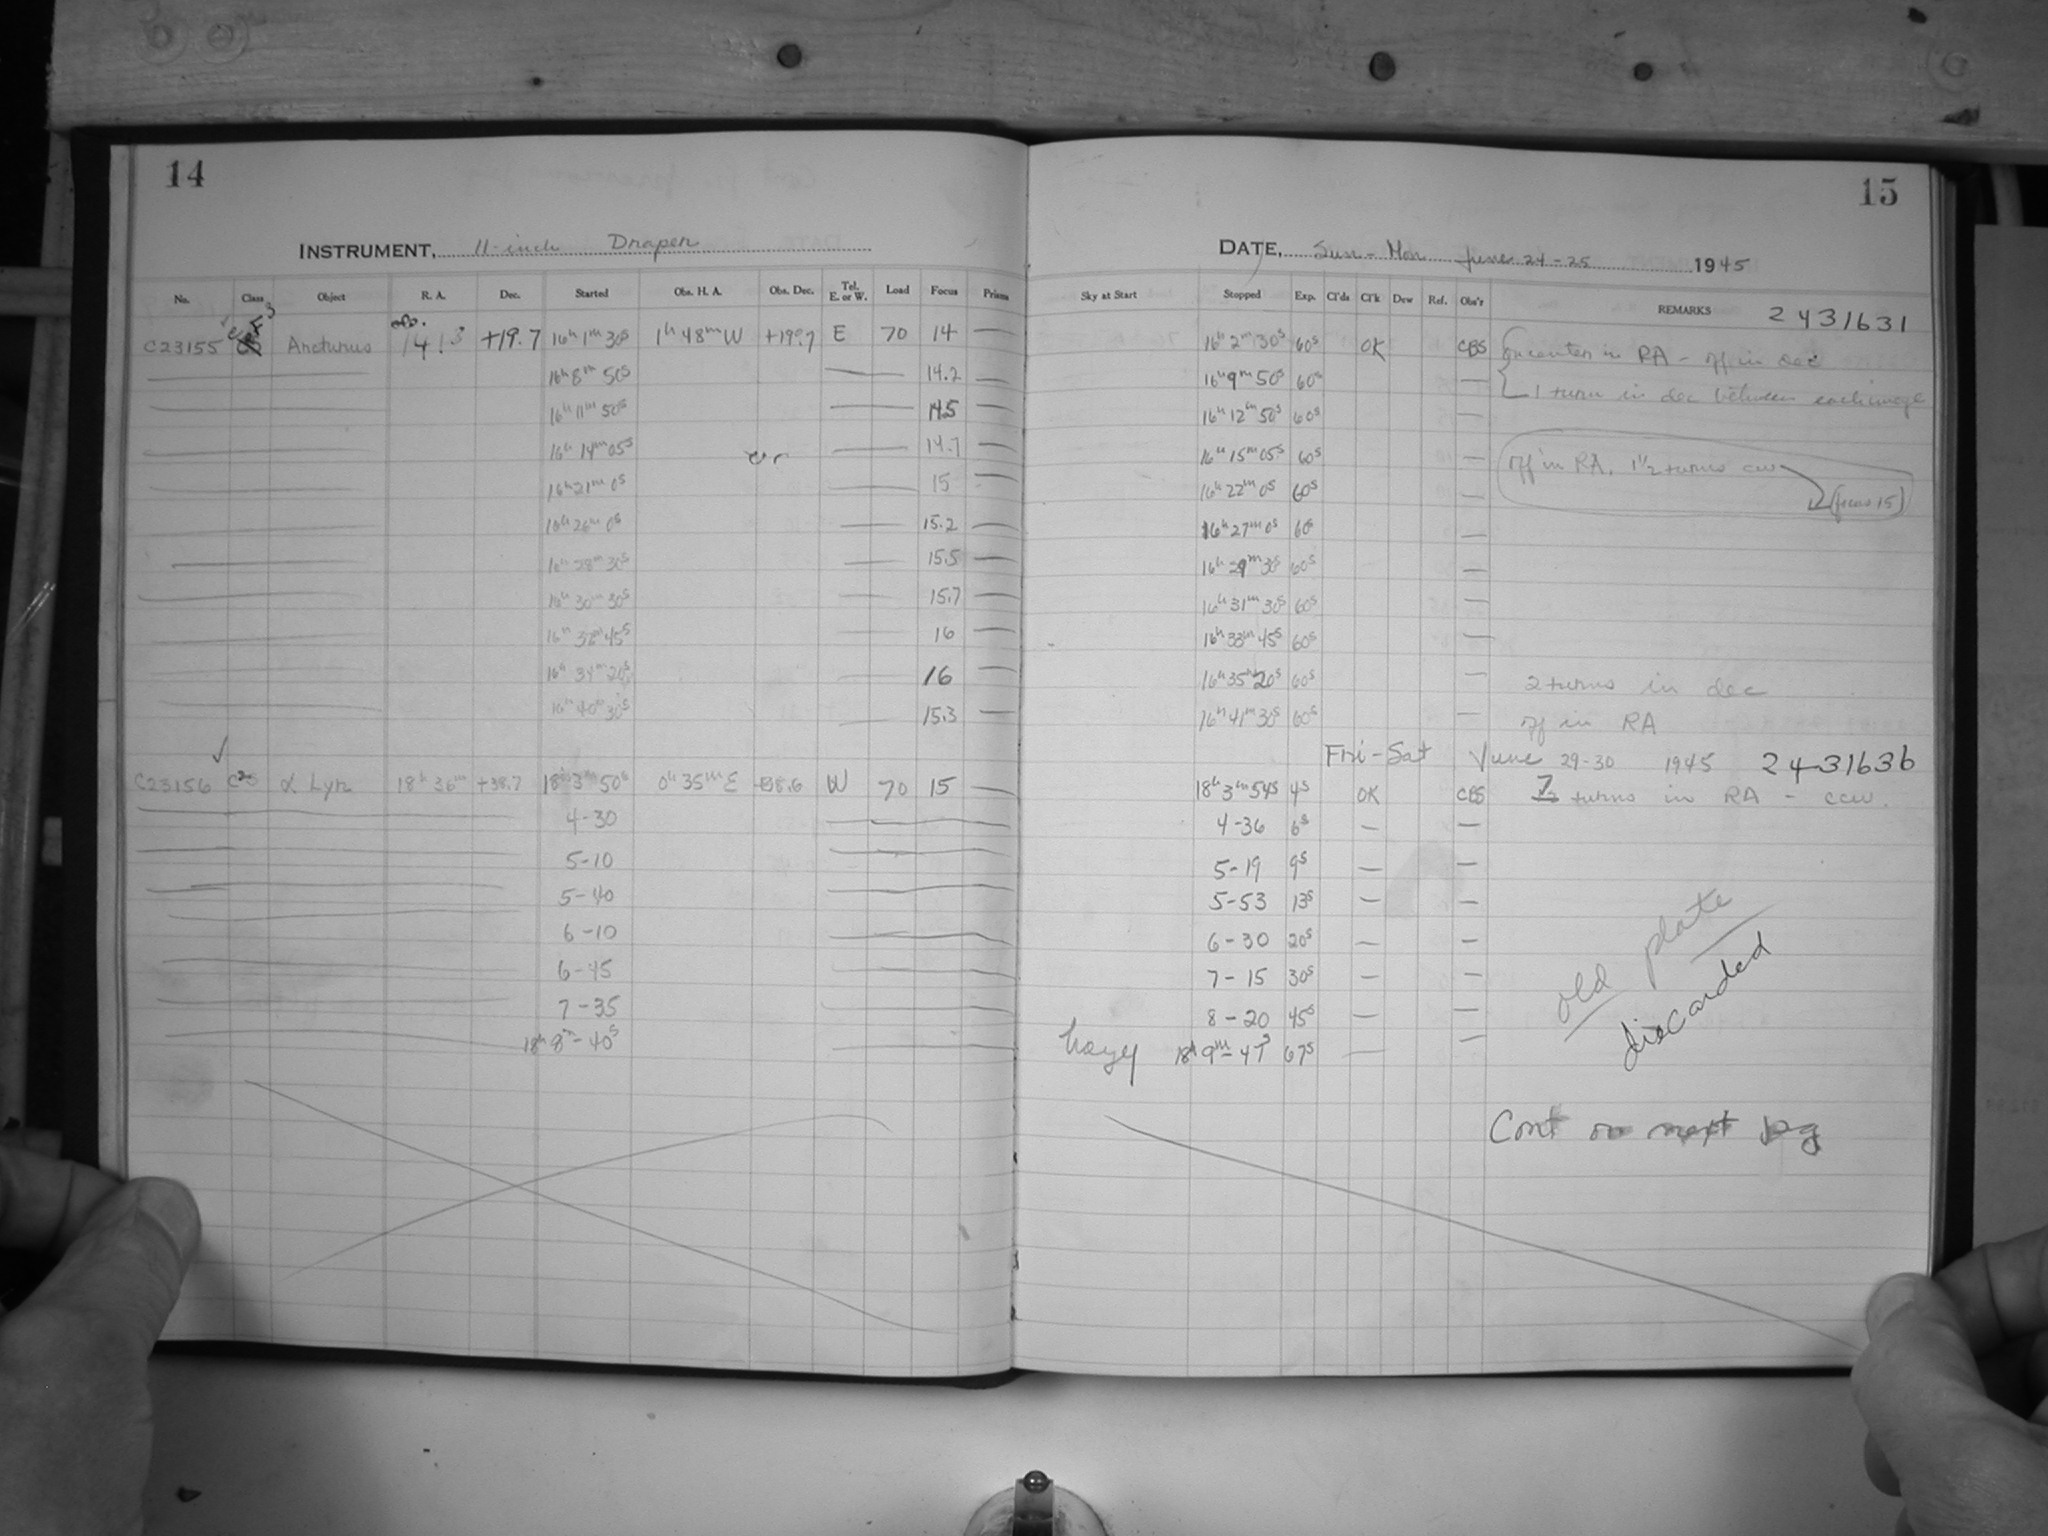 14
INSTRUMENT, 11-inch Draper
No. Class Object R. A. Dec. Started Obs. H. A. Obs. Dec. Tel. E. or W. Load Focus Prism
C23155 Arcturus 14 13 +19.7 16h 1m 30s 1h 48m W +19.7 E 70 14 —
16h 8m 50s 14.2 —
16h 11m 50s 14.5 —
16h 14m 05s 14.7 —
16h 21m 0s 15 —
16h 26m 0s 15.2 —
16h 28m 30s 15.5 —
16h 30m 30s 15.7 —
16h 32m 45s 16 —
16h 34m 20s 16 —
16h 40m 30s 15.3 —
C23156 α Lyr 18h 36m +38.7 18h 3m 50s 0h 35m E +38.6 W 70 15 —
4-30
5-10
5-40
6-10
6-45
7-35
18h 8m-40s
15
DATE, Sun-Mon June 24-25 1945
Sky at Start Stopped Exp. Cl'ds Cl'k Dew Ref. Obs'r REMARKS 2431631
16h 2m 30s 60s OK CBS in RA - off in dec
16h 9m 50s 60s — 1 turn in dec between each image
16h 12m 50s 60s —
16h 15m 05s 60s — off in RA. 1½ turns cw
16h 22m 0s 60s — (focus 15)
16h 27m 0s 60s —
16h 29m 30s 60s —
16h 31m 30s 60s —
16h 33m 45s 60s —
16h 35m 20s 60s — 2 turns in dec
16h 41m 30s 60s — off in RA
Fri-Sat June 29-30 1945 2431636
18h 3m 54s 4s OK CBS 7 turns in RA - ccw.
4-36 6s — —
5-19 9s — —
5-53 13s — —
6-30 20s — —
7-15 30s — —
8-20 45s — —
hazy 18h 9m-47s 67s — —
old plate
discarded
Cont on next pg